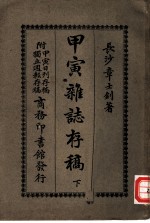 長沙章士釗著
甲寅雜誌存稿
下
附
甲寅日刊存稿
獨立週報存稿
商務印書館發行